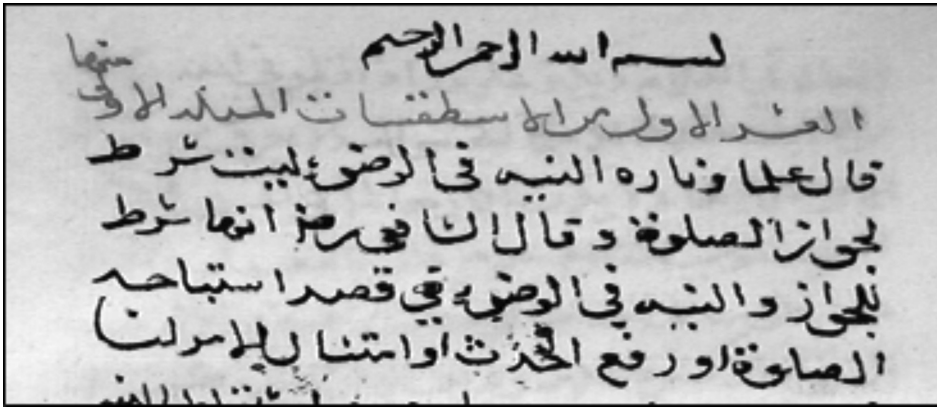 بسم الله الرحمن الرحيم
العشر الاول من الاسطقسات المسئلة الاولى منها
قال علماؤنا ره النيه في الوضوء ليست شرط
لجواز الصلوة وقال الشافعي رحمه انها شرط
للجواز والنيه في الوضوء هي قصد استباحه
الصلوة او رفع الحدث او امتثال للامر لنا